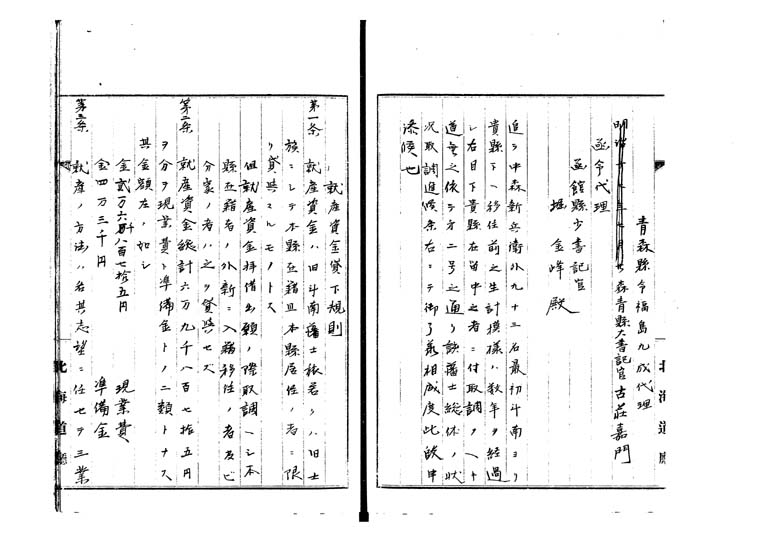 青森縣令福島九成代理
青森縣大書記官古莊嘉門
函令代理
函館縣少書記官
堀金峰殿
追テ中森新兵衛外九十三名最初斗南ヨリ
貴縣下ヘ移住前之生計摸樣ハ数年ヲ経過
シ右目下貴縣在留中之者ニ付取調ノヘキ
道無之依テ方二号之通リ該藩士総体ノ状
況取調進候条右ニテ御了義相成度此段申
添候也
就産資金貸下規則
第一条 就産資金ハ旧斗南藩士族若クハ旧士
族ニシテ本縣在籍且本縣居住ノ者ニ限
リ貸與スルモノトス
但就産資金拝借出願ノ際取調ヘシ本
縣在籍者ノ外新ニ入籍移住ノ者及ヒ
分家ノ者ハ之ヲ貸與セス
第二条 就産資金総計六万九千八百七拾五円
ヲ分ヲ現業費ト準備金トノ二類トナス
其金額左ノ如シ
金貳万六千八百七拾五円 現業費
金四万三千円 準備金
第三条 就産ノ方法ハ各其志望ニ任セテ三業
北海道廳
北海道廳